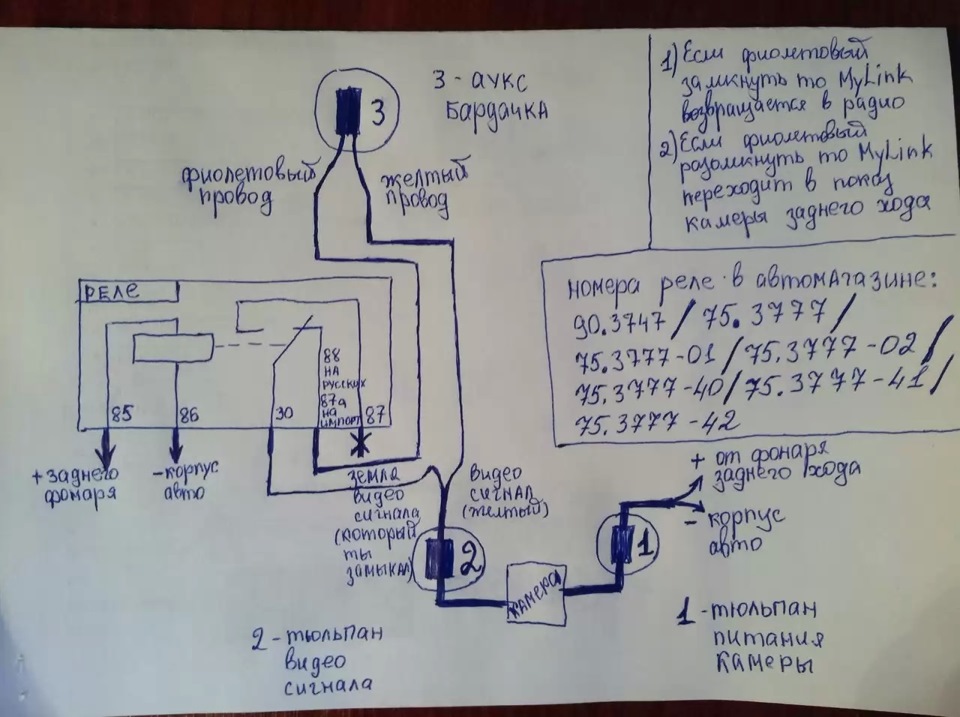 1) Если фиолетовый
замкнуть то MyLink
возвращается в радио
2) Если фиолетовый
разомкнуть то MyLink
переходит в показ
камеры заднего хода
3 - аукс
Бардачка
3
фиолетовый
провод
желтый
провод
номера реле в автомагазине:
90.3747 / 75.3777 /
75.3777-01 / 75.3777-02 /
75.3777-40 / 75.3777-41 /
75.3777-42
РЕЛЕ
85
86
30
88
на
русских
87а
на
импорт
87
+ заднего
фонаря
- корпус
авто
земля
видео
сигнала
(который
ты
замыкал)
видео
сигнал
(желтый)
+ от фонаря
заднего хода
- корпус
авто
2
1
КАМЕРА
2 - тюльпан
видео
сигнала
1 - тюльпан
питания
камеры